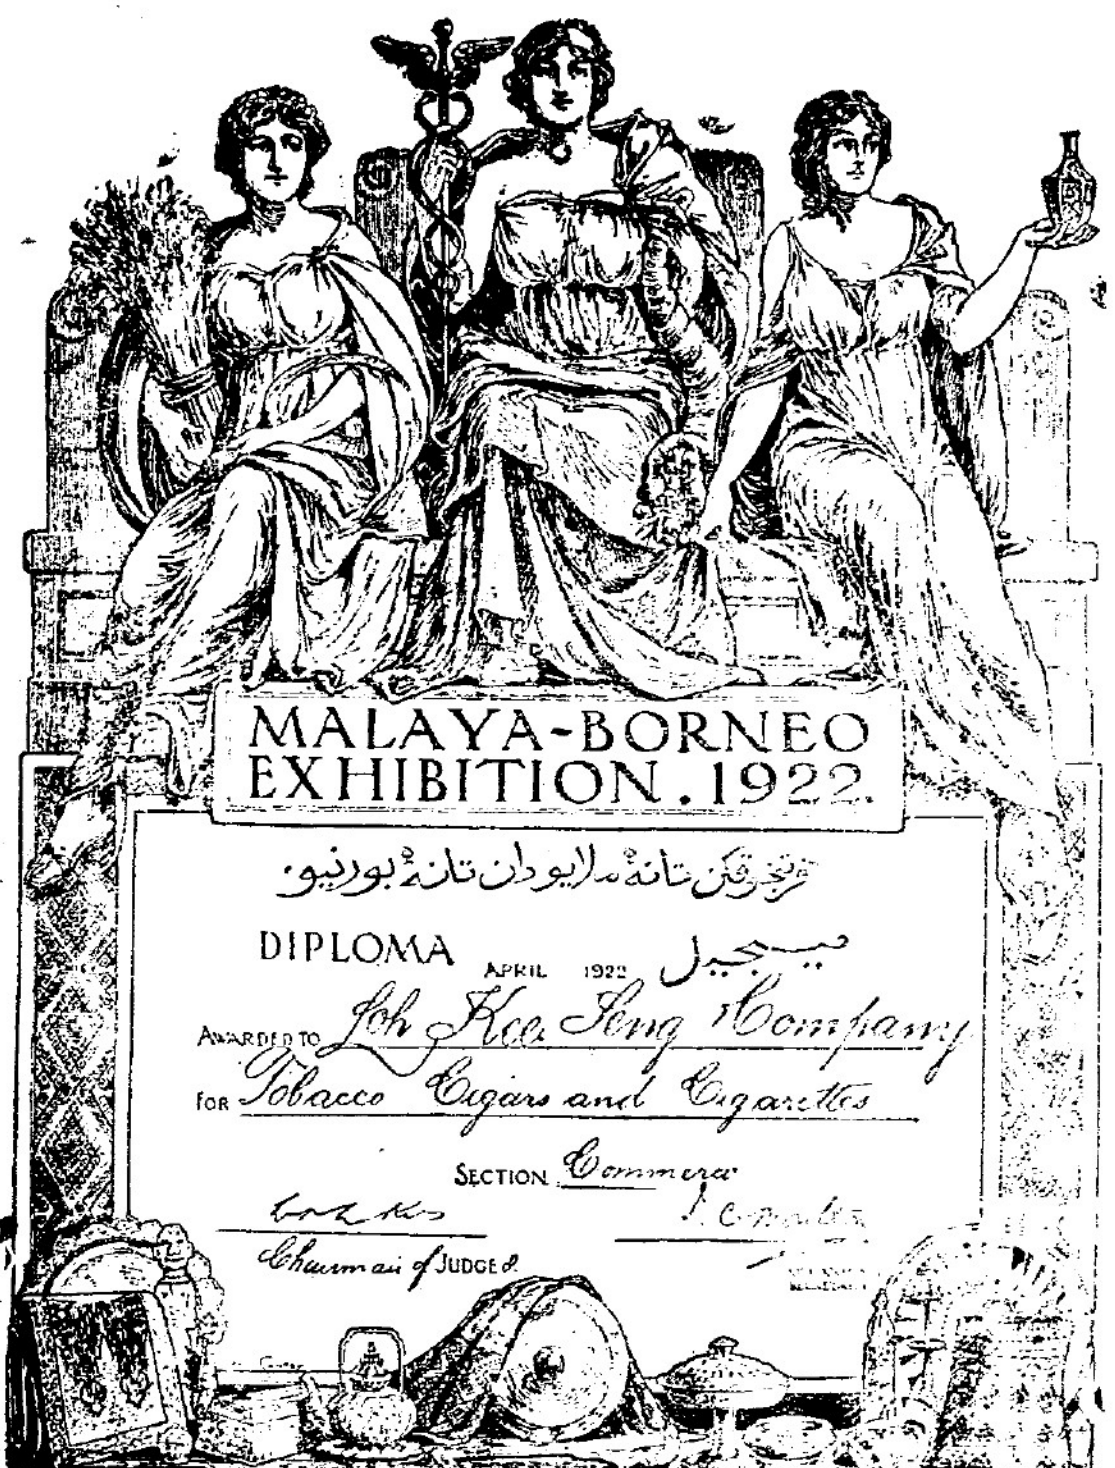 MALAYA-BORNEO
EXHIBITION.1922.
تانه ملايو دان تانه بورنيو.
DIPLOMA
APRIL 1922
AWARDED TO Loh Kee Seng & Company
FOR Tobacco Cigars and Cigarettes
SECTION Commerce
Chairman of JUDGES.